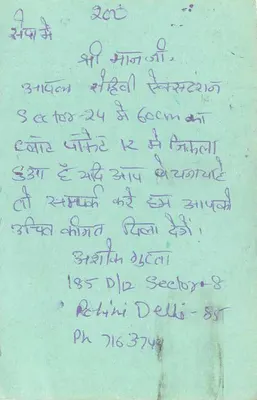 सेवा में
श्री मान जी.
आपका रोहिणी ऐक्सटेंशन
Sector-24 में 60cm का
प्लॉट पॉकेट 12 में निकला
हुआ है यदि आप बेचना चाहे
तो सम्पर्क करे हम आपको
उचित कीमत दिला देगें।
अशोक गुप्ता
185 D/12 Sector-8
Rohini Delhi-85
Ph 716374